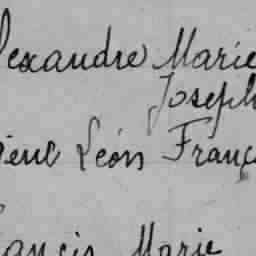 lexandre Marie
Joseph
gène Léon Franç
rancis Marie